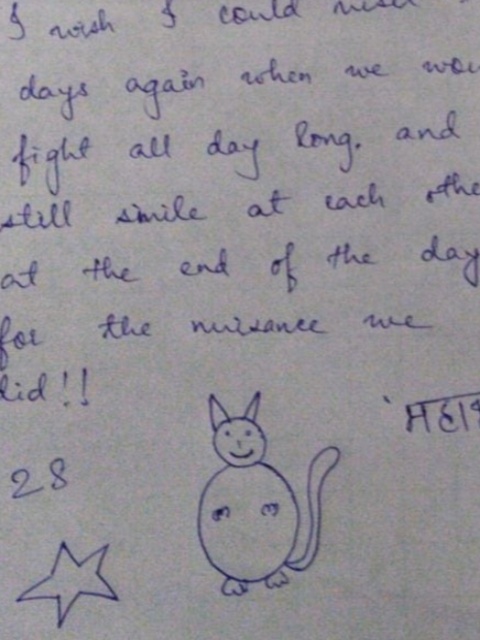 I wish I could
days again when we wou
fight all day long. and
still smile at each othe
at the end of the day
for the nuisance we
did!!
28